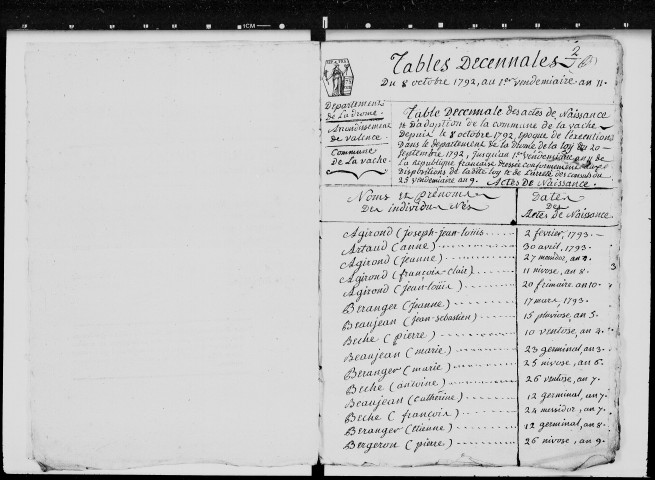 Tables Decennales
Du 8 octobre 1792, au 1er vendemiaire an 11.
Département
de La drome.
Arrondissement
de valence.
Commune
de La vache
Table Decennale des actes de Naissance
et D'adoption de la commune de la vache
Depuis le 8 octobre 1792 epoque de l'execution
Dans le departement de la Drome de la loy du 20
septembre 1792, jusqu'au 1er vendemiaire an 11 de
La republique francaise dressée conformement aux
Dispositions de ladite loy et de L'arreté des consuls du
25 vendemiaire an 9. Actes de Naissance.
Noms et Prénoms
Des individus Nés
Dates
Des
Actes de Naissance
Agirond (Joseph-jean-louis 2 fevrier, 1793.
Artaud (anne) 30 avril, 1793.
Agirond (jeanne) 27 messidor, an 4.
Agirond (françois-clair) 11 nivose, an 8.
Agirond (jean-louis) 20 frimaire, an 10.
Beranger (jeanne) 17 mars, 1793.
Beaujean (jean-sebastien) 15 pluviose, an 5.
Beche (pierre) 10 ventose, an 4.
Beaujean (marie) 23 germinal, an 3.
Beranger (marie) 25 nivose, an 6.
Beche (antoine) 26 ventose, an 7.
Beaujean (catherine) 12 germinal, an 7.
Beche (françois) 24 messidor, an 7.
Beranger (etienne) 12 germinal, an 8.
Bergeron (pierre) 26 nivose, an 9.